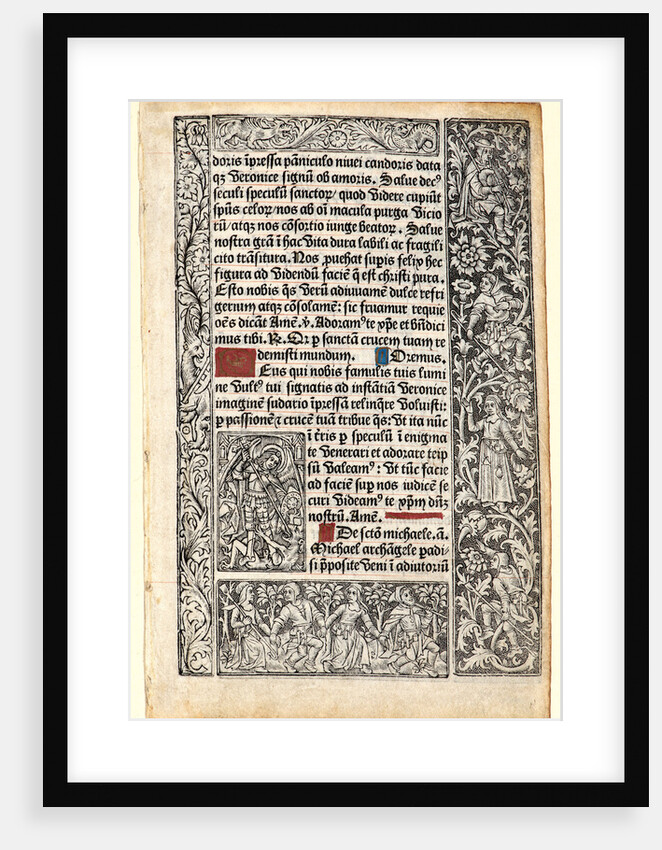 doris īpressa pāniculo niuei candoris data
qz Veronice signū ob amoris. Salue decꝰ
seculi speculū sanctoꝝ/ quod Videre cupiūt
spūs celoꝝ/ nos ab oī macula purga Vicio
rū/ atqz nos cōsortio iunge beatoꝝ. Salue
nostra grā ī hac Vita dura labili ac fragili
cito trāsitura. Nos ꝓuehat suꝑis felix hec
figura ad Videndū faciē q̄ est christi pura.
Esto nobis q̄s Verū adiuuamē dulce refri
gerium atqz cōsolamē: sic fruamur requie
oēs dicāt Amē. ℣. Adoramꝰ te xp̄e et bn̄dici
mus tibi. ℟. Qꝛ ꝑ sanctā crucem tuam re
demisti mundum. Oremus.
Eus qui nobis famulis tuis lumi
ne Vultꝰ tui signatis ad instātiā Veronice
imaginē sudario īpressā relinq̄re Voluisti:
ꝑ passionē ⁊ crucē tuā tribue q̄s: Vt ita nūc
ī t̄ris ꝑ speculū ī enigma
te Venerari et adorare teip
sū Valeamꝰ: Vt tūc facie
ad faciē suꝑ nos iudicē se
curi Videamꝰ te xp̄m dn̄z
nostrū. Amē.
De sctō michaele. ā.
Michael archāgele ꝑadi
si p̄posite Veni ī adiutoriū